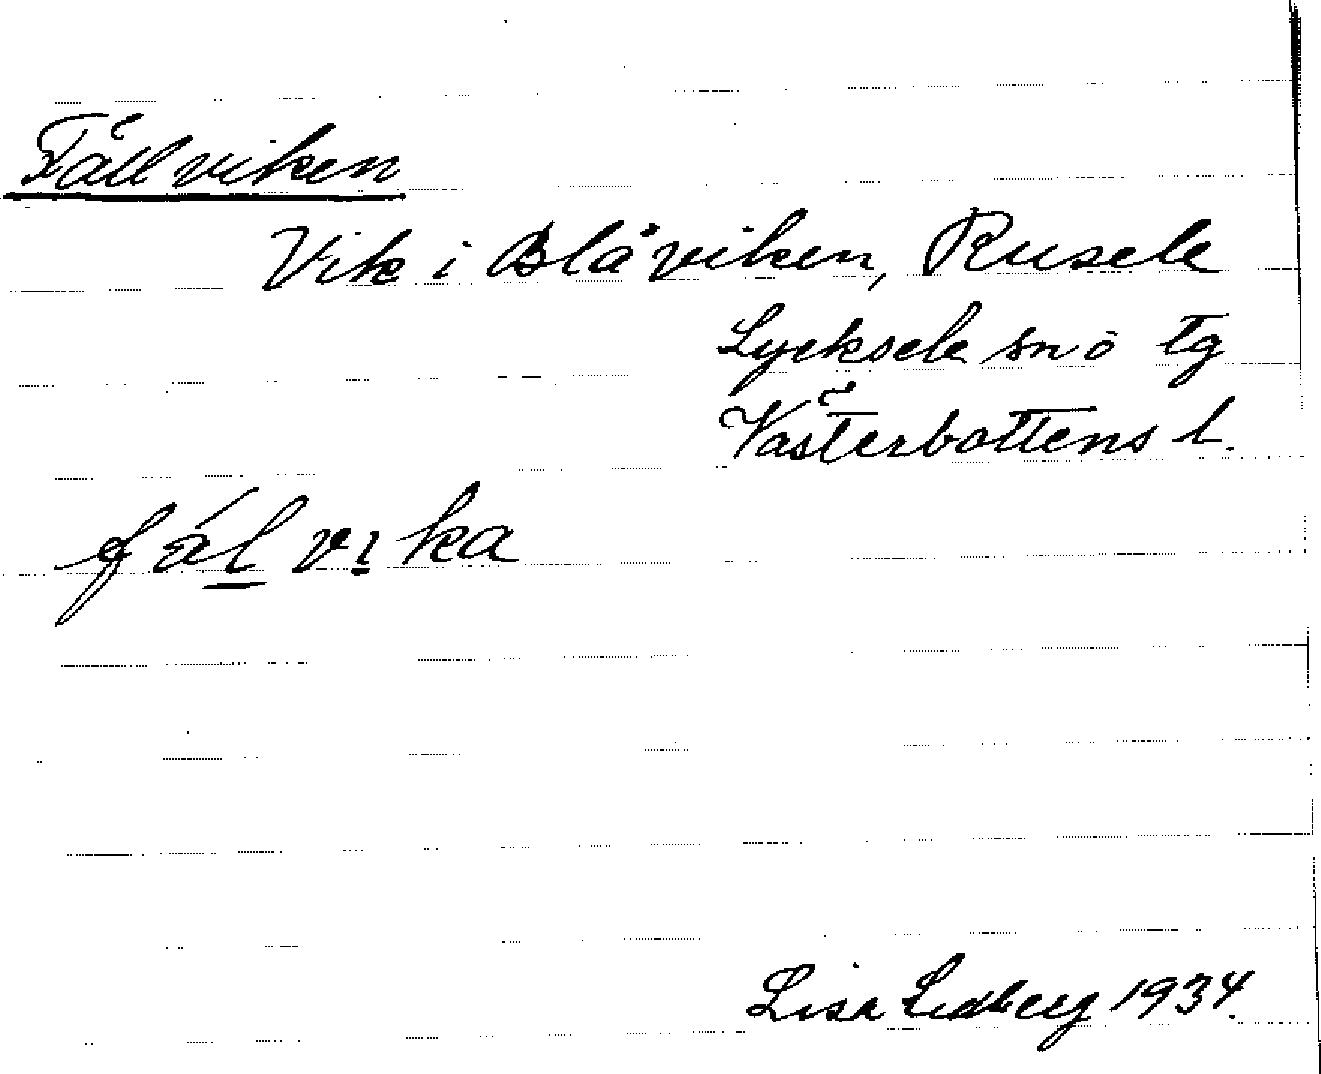 Fällviken
Vik i Blåviken, Rusele
Lycksele snö tg
Västerbottens l.
fálvıka
Lisa Lidberg 1934.